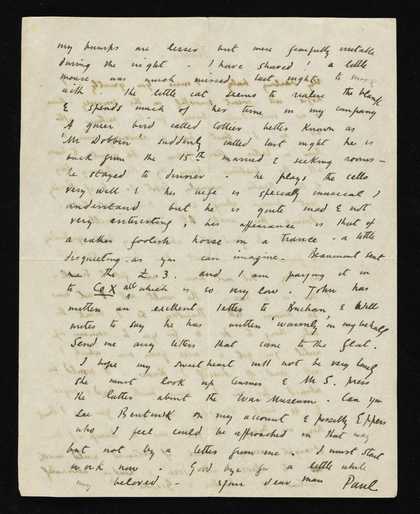 my bumps are lesser but more painfully irritable
during the night - I have shaved! a little
mouse was much missed last night to
with the little cat seems to realise the blank
& spends much of her time in my company
A queer bird called Collier better known as
'Mr Dobbin' suddenly called last night he is
back from the 15th married & seeking rooms -
he stayed to dinner - he plays the cello
very well & his wife is specially musical I
understand but he is quite mad & not
very interesting, his appearance is that of
a rather foolish horse in a trance - a little
disquieting as you can imagine. Beaumont sent
me the £.3. and I am paying it in
to Cox all which is so very low. John has
written an excellent letter to Buchan, & Will
writes to say he has written 'warmly' in my behalf
Send me any letters that come to the flat.
I hope my sweetheart will not be very long
she must look up & M.S. press
the latter about the War Museum. Can you
see Bentwich on my account & possibly Eppers
who I feel could be approached in that way
but not by a letter from me. I must start
work now. Good bye for a little while
my beloved - your dear man Paul